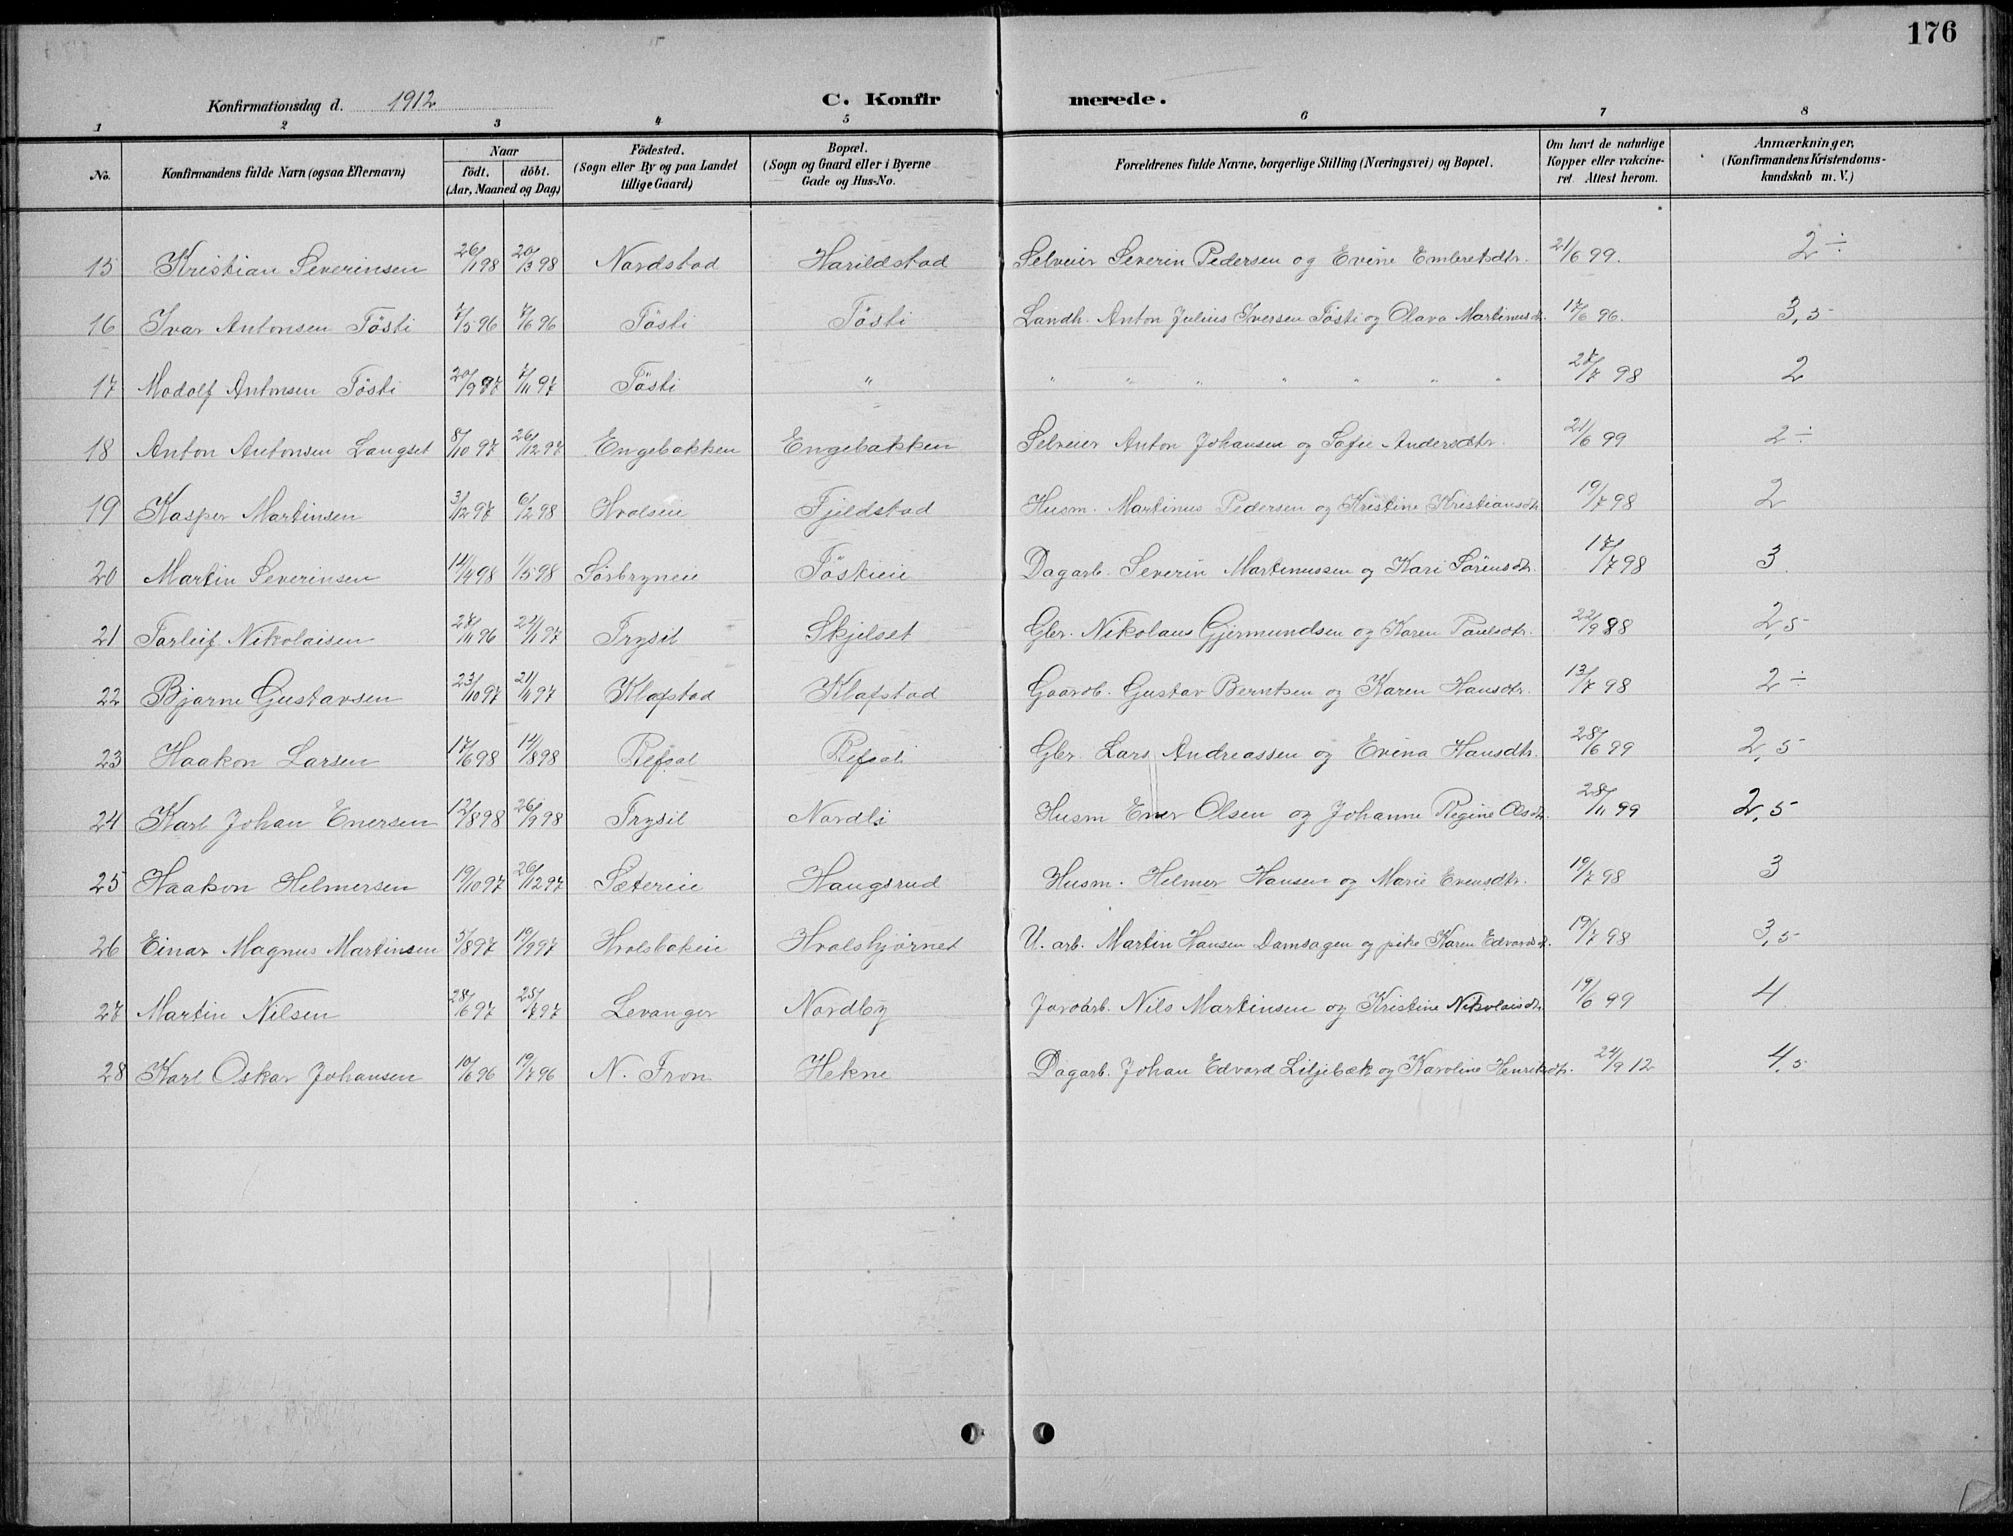 176
Konfirmationsdag d. 1912 C. Konfir merede.
1 2 3 4 5 6 7 8
No. Konfirmandens fulde Navn (ogsaa Efternavn) Naar født. døbt. (Aar, Maaned og Dag) Fødested. (Sogn eller By og paa Landet tillige Gaard) Bopæl. (Sogn og Gaard eller i Byerne Gade og Hus-No. Forældrenes fulde Navne, borgerlige Stilling (Næringsvei) og Bopæl. Om havt de naturlige Kopper eller vakcineret. Attest herom. Anmærkninger, (Konfirmandens Kristendomskundskab m. V.)
15 Kristian Severinsen 26/1 98 20/3 98 Nordstad Harildstad Selveier Severin Pedersen og Evine Embretsdtr. 21/6 99. 2 ÷
16 Ivar Antonsen Tösti 7/5 96 7/6 96 Tösti Tösti Landh. Anton Julius Iversen Tösti og Olava Martinusdtr. 17/6 96. 3,5
17 Modolf Antonsen Tösti 20/9 97 7/11 97 Tösti " " " " " " " " 27/7 98 2
18 Anton Antonsen Langset 8/10 97 26/12 97 Engebakken Engebakken Selveier Anton Johansen og Sofie Andersdtr. 21/6 99 2 ÷
19 Kasper Martinsen 3/12 97 6/2 98 Hvolseie Fjeldstad Husm. Martinus Pedersen og Kristine Kristiansdtr 19/7 98 2
20 Martin Severinsen 14/4 98 1/5 98 Sörbryneie Töstieie Dagarb. Severin Martinussen og Kari Sörensdtr. 17/7 98 3
21 Torleif Nikolaisen 27/11 96 22/1 97 Trysil Skjelset Gbr. Nikolaus Gjermundsen og Karen Paulsdtr. 22/9 98 2,5
22 Bjarne Gustavsen 23/10 97 21/11 97 Klofstad Klofstad Gaardb. Gustav Berntsen og Karen Hansdtr. 13/7 98 2 ÷
23 Haakon Larsen 17/6 98 14/8 98 Refsal Refsal Gbr. Lars Andreassen og Evina Hansdtr. 28/6 99 2,5
24 Karl Johan Enersen 12/8 98 26/9 98 Trysil Nordli Husm Ener Olsen og Johanne Regine Olsdtr. 28/11 99 2,5
25 Haakon Helmersen 19/10 97 26/12 97 Sætereie Haugsrud Husm. Helmer Hansen og Marie Evensdtr. 19/7 98 3
26 Einar Magnus Martinsen 5/8 97 19/9 97 Hvolsbakeie Hvolshjørnet U. arb. Martin Hansen Damsagen og pike Karen Edvardsd. 19/7 98 3,5
27 Martin Nilsen 28/6 97 25/7 97 Levanger Nordby Jordarb. Nils Martinsen og Kristine Nikolaisdtr 19/6 99 4
28 Karl Oskar Johansen 10/6 96 19/7 96 N. Fron Hekne Dagarb. Johan Edvard Liljebæk og Karoline Henriksdtr. 24/9 12 4,5